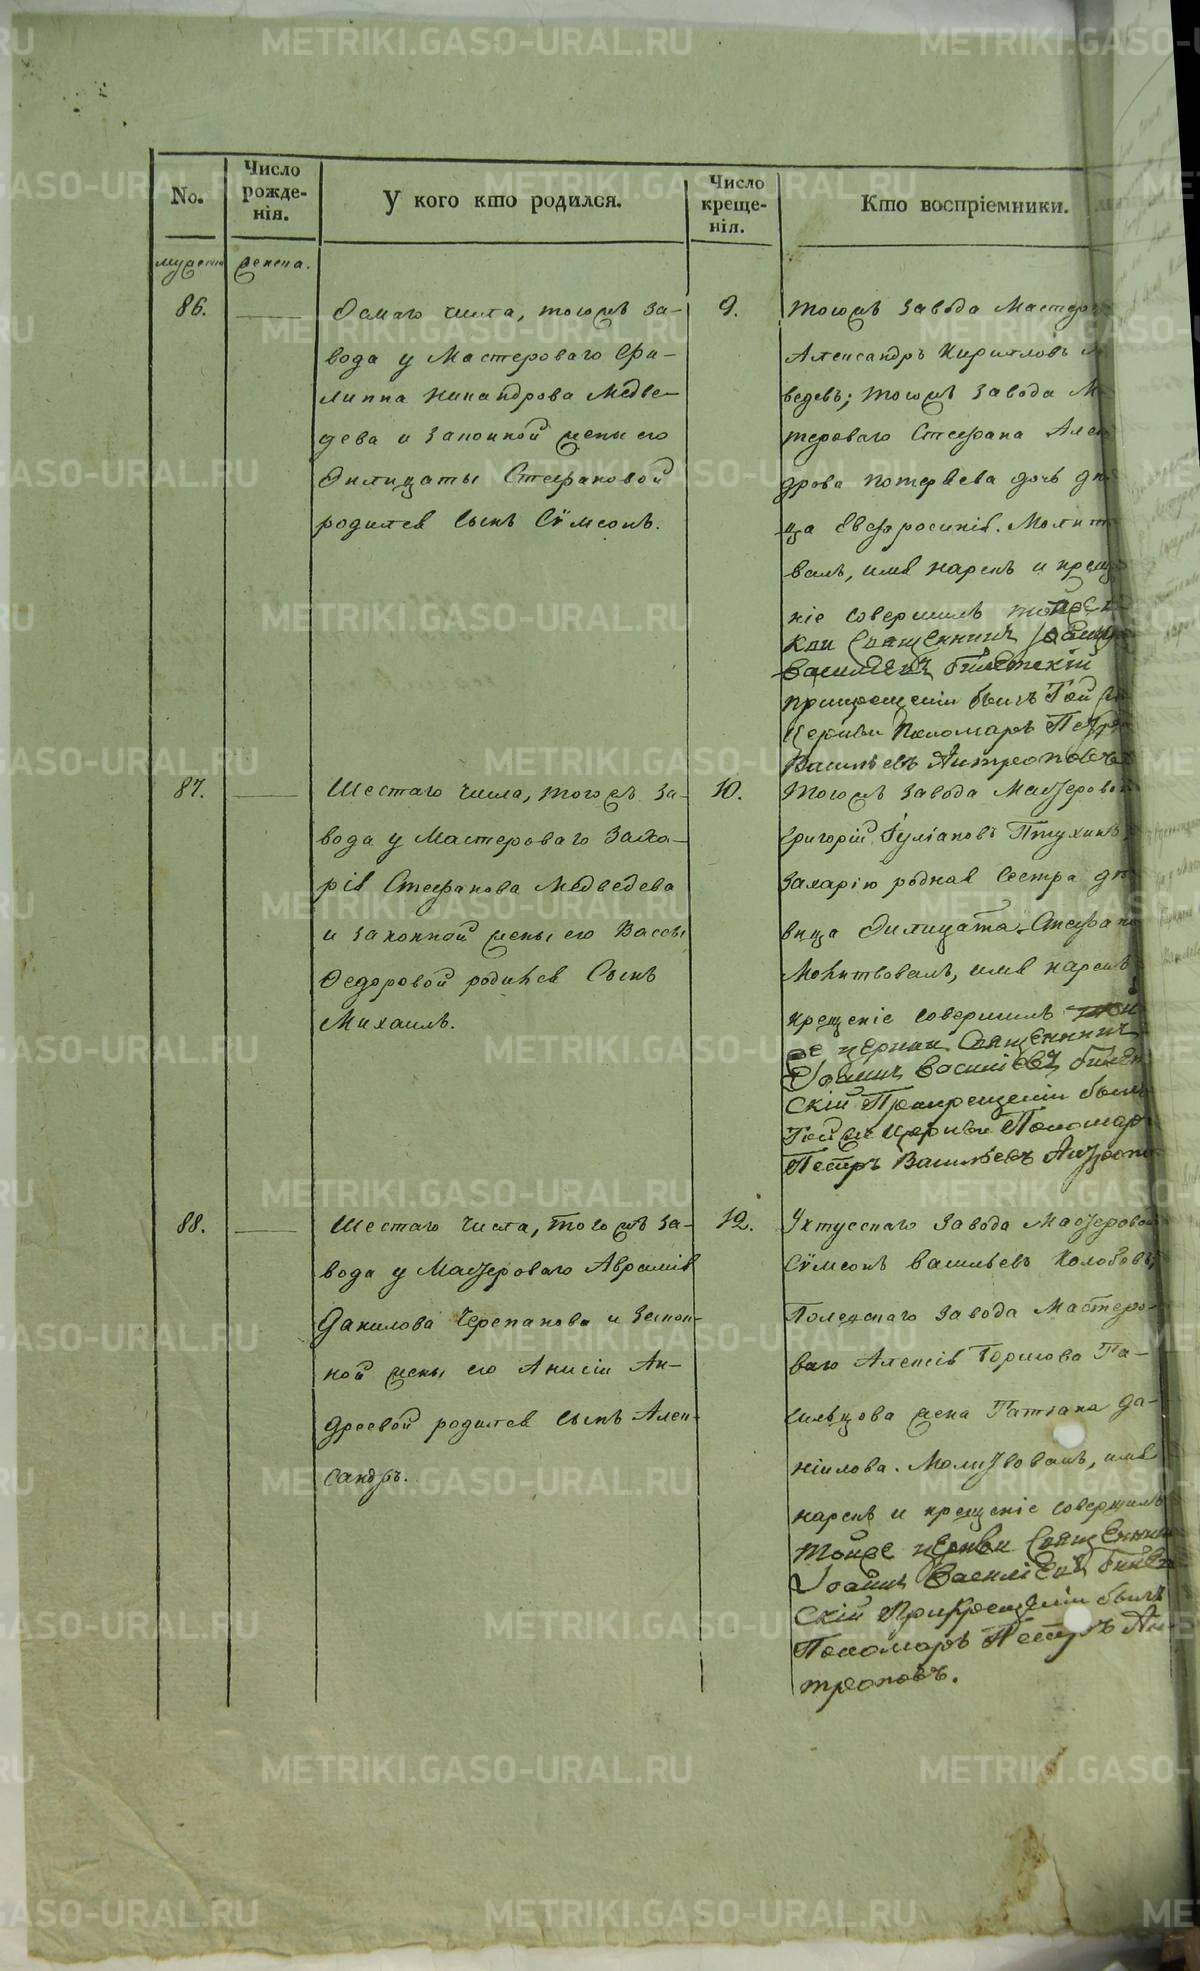 No.
Число рожде-нія.
У кого кто родился.
Число креще-нія.
Кто воспріемники.
мужеска
женска.
86.
Осмаго числа, тогожъ за-
вода у Мастероваго Фи-
липпа Никандрова Медве-
дева и законной жены его
Филицаты Стефановой
родился сынъ Сѵмеонъ.
9.
Тогожъ завода Мастеров
Александръ Кириловъ М
ведевъ; тогожъ завода М
тероваго Стефана Алек
дрова Потеряева дочь дѣ
ца Евфросинія. Молит
валъ, имя нарекъ и креще
ніе совершилъ тойже
кви Священникъ Іоаннъ
Васильевъ
прикрещеніи былъ Той же
церкви Пономарь Петръ
Васильевъ Антроповъ
87.
Шестаго числа, тогожъ за-
вода у Мастероваго Заха-
рія Стефанова Медведева
и законной жены его Вассы
Федоровой родился Сынъ
Михаилъ.
10.
Тогожъ завода Мастеровой
Григорій Іуліановъ Птухинъ,
Захарію родная Сестра дѣ
вица Филицата Стефано
Молитвовалъ, имя нарекъ
крещеніе совершилъ той
же церкви Священникъ
Іоаннъ Васильевъ
скій При крещеніи былъ
Той же церкви Пономарь
Петръ Васильевъ Антропо
88.
Шестаго числа, тогожъ за-
вода у Мастероваго Аврамія
Данилова Черепанова и закон-
ной жены его Анисіи Ан-
дреевой родился сынъ Алек-
сандръ.
12.
Уктусскаго завода Мастеровой
Сѵмеонъ Васильевъ Колобовъ,
Полевскаго завода Мастеро-
ваго Алексія Борисова Па-
льцова жена Татіана Да-
ніилова. Молитвовалъ, имя
нарекъ и крещеніе совершилъ
тойже церкви Священникъ
Іоаннъ Васильевъ
скій При крещеніи былъ
Пономарь Петръ Ан-
троповъ.
METRIKI.GASO-URAL.RU